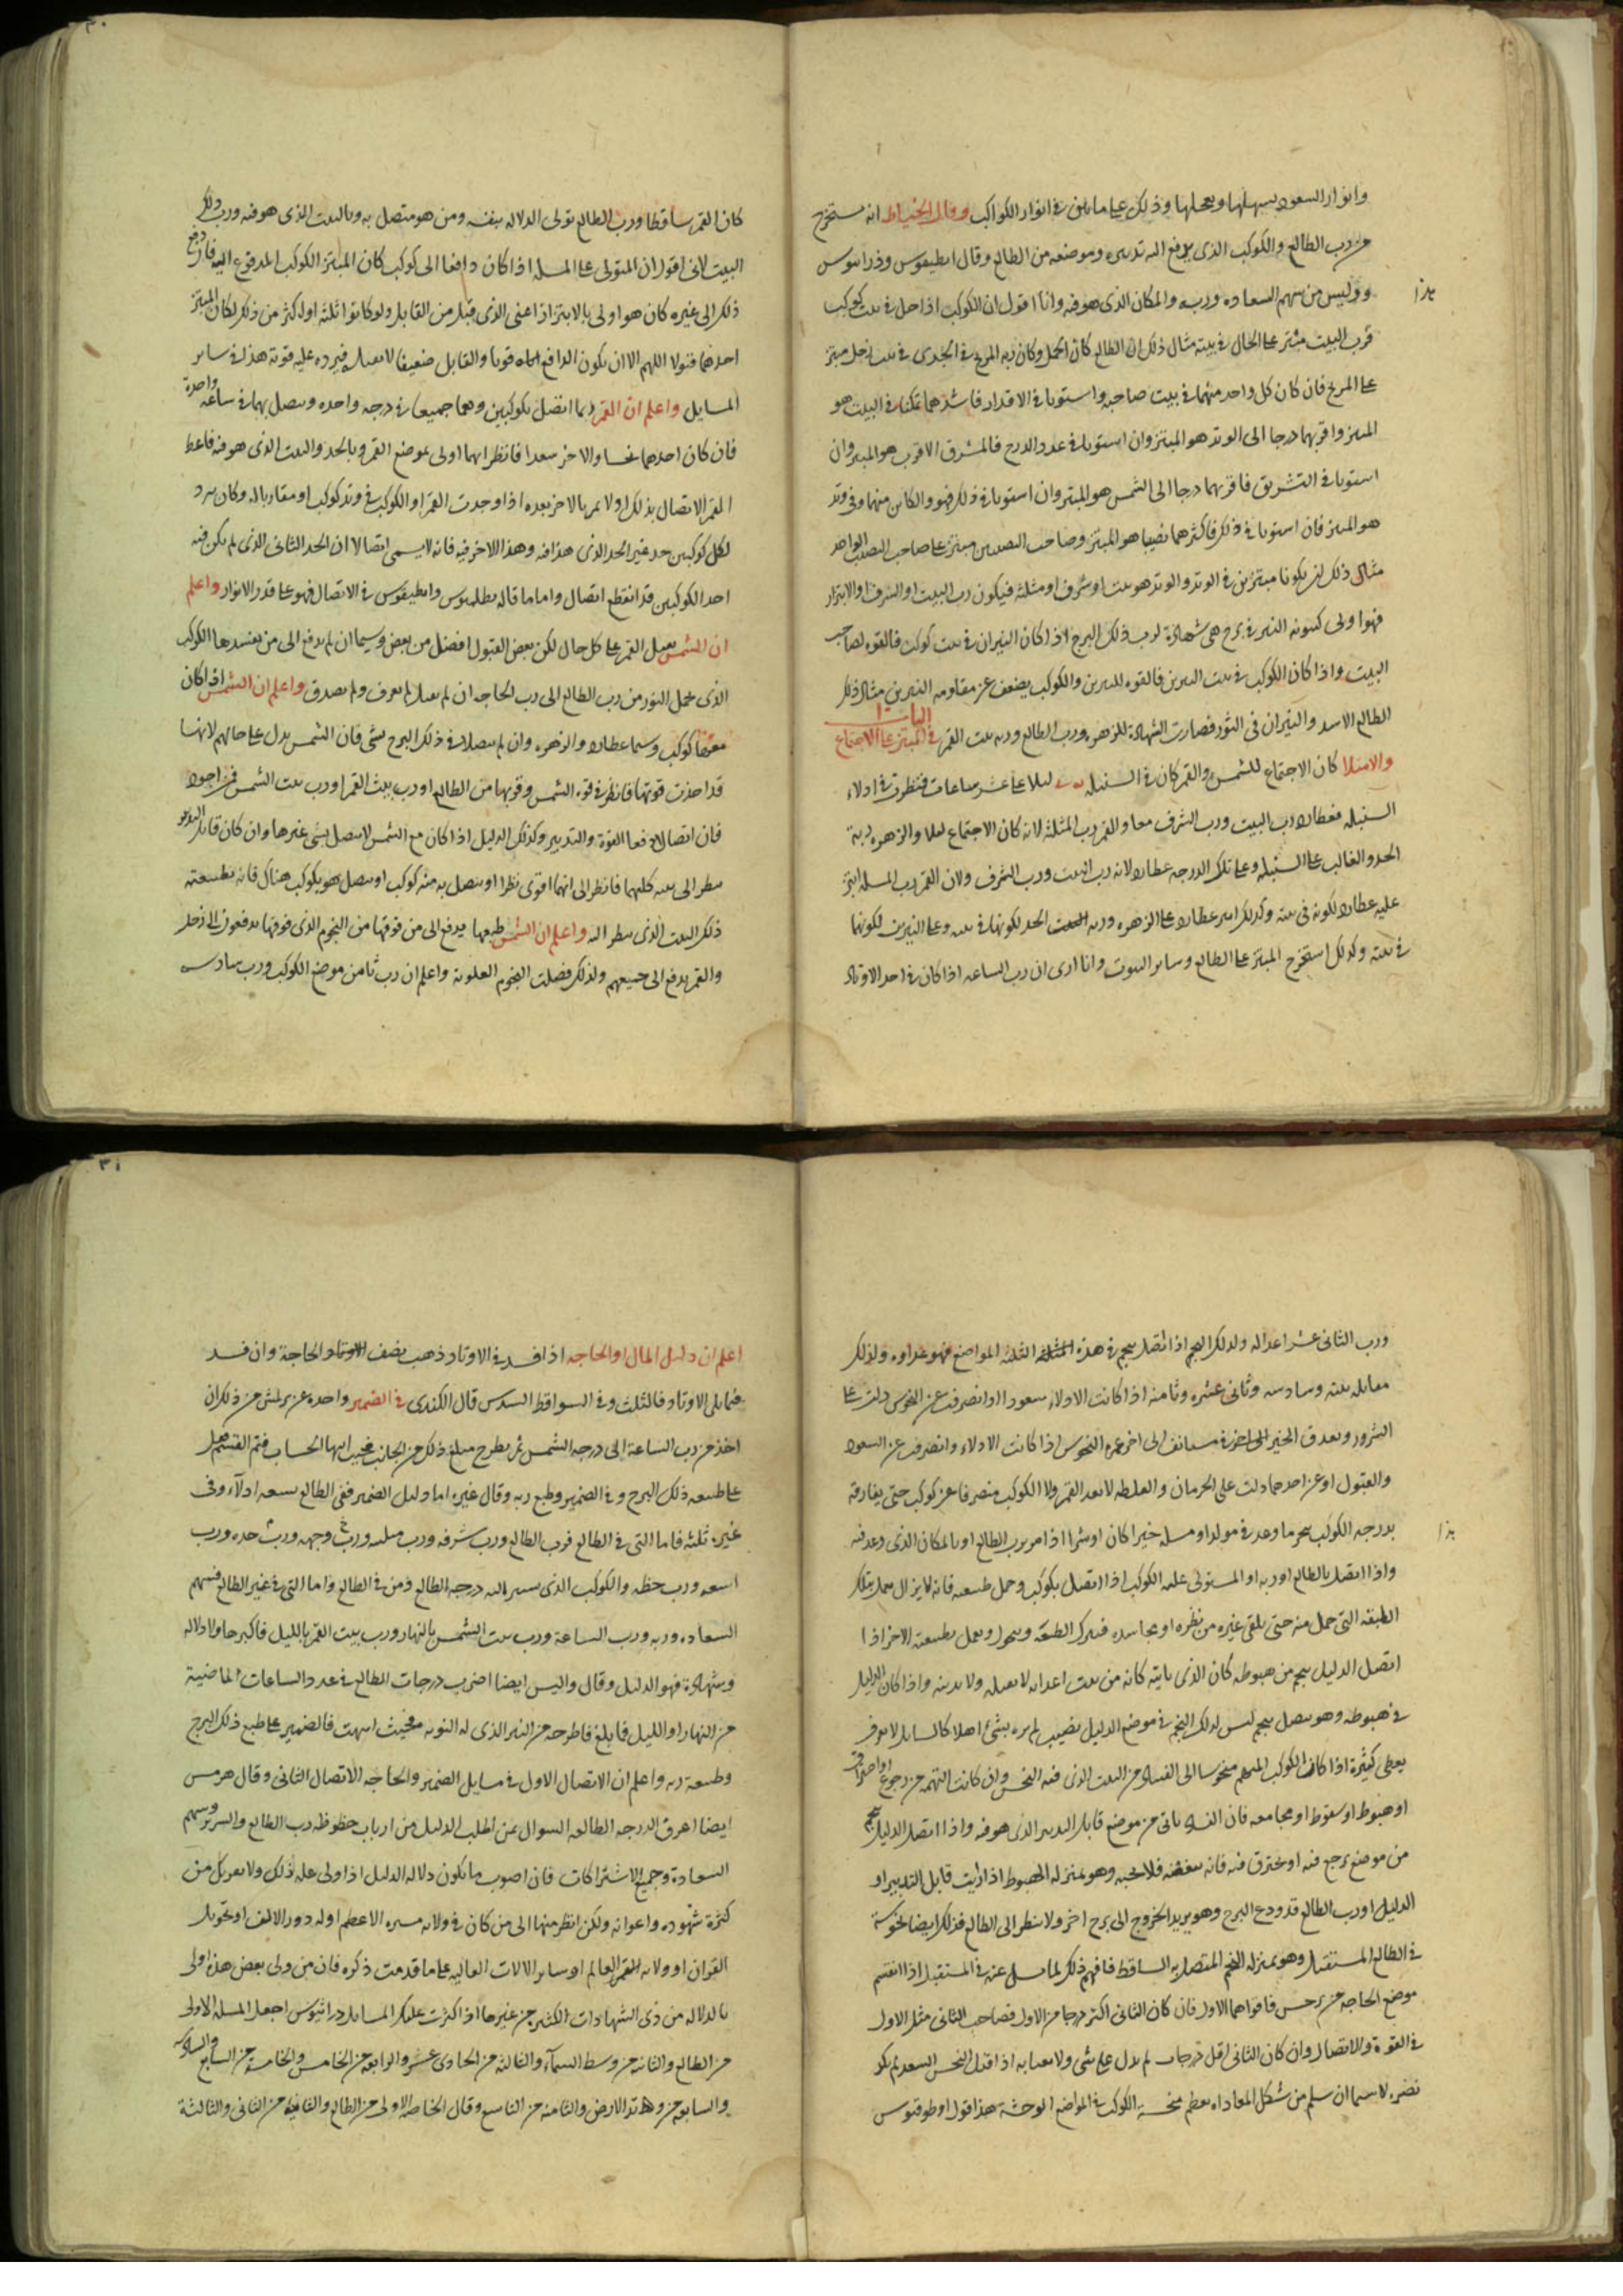 وانوار السعود يسهلها ويعجلها وذلك على ما يلى فى انوار الكواكب وقال الخياط انه يستخرج
من رب الطالع والكوكب الذى يدفع اليه تدبيره وموضعه من الطالع وقال انطيقوس وذرانيوس
وواليس من سهم السعاده وربه والمكان الذى هو فيه وانا اقول ان الكوكب اذا حل فى بيت كوكب
هذا
فرب البيت مبتز على الحال فى بيته مثال ذلك ان الطالع كان الحمل وكان ربه المريخ فى الجدى فى بيت زحل مبتز
على المريخ فان كان كل واحد منهما فى بيت صاحبه واستويا فى الاقدار فاشدهما تمكنا فى البيت هو
المبتز واقربهما درجا الى الوتد هو المبتز وان استويا فى عدد الدرج فالمشرق الاقرب هو المبتز وان
استويا فى التشريق فاقربهما درجا الى الشمس هو المبتز وان استويا فى ذلك فهو والكاين منهما فى وتد
هو المبتز فان استويا فى ذلك فاكثرهما نصيبا هو المبتز وصاحب النصيبين مبتز على صاحب النصيب الواحد
مثال ذلك ان يكونا مبتزين فى الوتد والوتد هو بيت او شرف او مثلثه فيكون رب البيت او الشرف اولا بالابتزاز
فهو اولى كينونه النير فى برج هى شهادة لرب ذلك البرج اذا كان النيران فى بيت كوكب فالقوه لصاحب
البيت واذا كان الكوكب فى بيت النيرين فالقوه للنيرين والكوكب يضعف عن مقاومه النيرين مثال ذلك
الطالع الاسد والنيران فى الثور فصارت الشهادة للزهره ورب الطالع وربه بيت القمر الباب فى المبتز على الاجتماع
والامتلا كان الاجتماع للشمس والقمر كان فى السنبله ليلا على عشر ساعات فنظرت فى ادلاء
السنبله فعطارد رب البيت ورب الشرف معا والقمر رب المثلثه لانه كان الاجتماع ليلا والزهره ربة
الحد والغالب على السنبله وعلى تلك الدرجه عطارد لانه رب البيت ورب الشرف ولان القمر رب المسله ابتز
عليه عطارد لكونه فى بيته وكذلك ابتز عطارد على الزهره وربه الحد لكونها فى بيته وعلى النيرين لكونهما
فى بيته وكذلك استخرج المبتز على الطالع وساير البيوت وانا ارى ان رب الساعه اذا كان فى احد الاوتاد
٣٠
كان القمر ساقطا ورب الطالع تولى الدلاله بنفسه ومن هو متصل به وبالبيت الذى هو فيه ورب ذلك
البيت لانى اقول ان المتولى على المسله اذا كان دافعا الى كوكب كان المبتز الكوكب المدفوع اليه فان دفع
ذلك الى غيره كان هو اولى بالابتزاز اعنى الذى قبل من القابل ولو كانوا ثلثه او اكثر من ذلك لكان المبتز
احدهما فتولا اللهم الا ان يكون الدافع قويا والقابل ضعيفا لا يقبل فيرده عليه قوته هذا فى ساير
المسايل واعلم ان القمر ربما اتصل بكوكبين وهما جميعا فى درجه واحده ويتصل بهما فى ساعه واحدة
فان كان احدهما نحسا والاخر سعدا فانظر ايهما اولى بموضع القمر وبالحد والبيت الذى هو فيه فاعط
القمر الاتصال بذلك اولا ثم بالاخر بعده اذا وجدت القمر او الكوكب فى وتد كوكب او مقاربا له وكان يرد
لكل كوكبين حد غير الحد الذى هذا فيه وهذا الاخر فيه فانه لا يسمى اتصالا لان الحد الثانى الذى لم يكن فيه
احد الكوكبين قد انقطع اتصال واما ما قاله بطلميوس وانطيقوس فى الاتصال فهو على قدر الانوار واعلم
ان الشمس تقبل القمر على كل حال لكن بعض القبول افضل من بعض وسيما ان لم يدفع الى من يفسدها الكوكب
الذى يحمل النور من رب الطالع الى رب الحاجه ان لم يقبل لم يعرف ولم يصدق واعلم ان الشمس اذا كان
معها كوكب وسيما عطارد والزهره وان لم يتصلا فى ذلك البرج بشى فان الشمس تدل على حالهم لانها
قد اخذت قوتها فانظر فى قوه الشمس وقربها من الطالع او رب بيت القمر او رب بيت الشمس فمن اجود
فان اتصالا دفعا القوة والتدبير وكذلك الدليل اذا كان مع الشمس لا يتصل بشى غيرها وان كان قابل التدبير
ينظر الى بيته كليهما فانظر الى انهما اقوى نظرا او يتصل به منه كوكب او يتصل هو بكوكب هناك فانه بطبيعته
ذلك البيت الذى ينظر اليه واعلم ان الشمس طبعها يدفع الى من فوقها من النجوم الذى فوقها يدفعون الى زحل
والقمر يدفع الى جميعهم ولذلك فضلت النجوم العلويه واعلم ان رب ثامن موضع الكوكب ورب سادسه
ورب الثانى عشر اعدا له وكذلك النجم اذا اتصل بنجم فى هذه الثلثه المواضع فهو عداوه وكذلك
مقابله بيته وسادسه وثانى عشره وثامنه اذا كانت الادلاء سعودا وانصرفت عن النحوس دلت على
الشرور وتعدى الخير الى اخره فيستانف الى اخر عمره النحوس اذا كانت الادلاء وانصرفت عن السعود
والقبول او عن احدهما دلت على الحرمان والغلطه لا يعد القمر ولا الكوكب منصرفا عن كوكب حتى يفارقه
هذا
بدرجه الكوكب ينجز ما وعد فى مولد او مسله خيرا كان او شرا اذا مر برب الطالع او بالمكان الذى وعد فيه
واذا اتصل بالطالع او ربه او المستولى عليه الكوكب اذا اتصل بكوكب وحمل طبيعه فانه لا يزال يعمل بتلك
الطبيعه التى حمل منه حتى يلقى غيره من نظره او مجاسده فيترك الطبيعه ويتحول ويعمل بطبيعه الاخر اذا
اتصل الدليل بنجم من هبوطه كان الذى ياتيه كانه من بيت اعدايه لا يقبله ولا يدينه واذا كان الدليل
فى هبوطه وهو يتصل بنجم ليس لذلك النجم فى موضع الدليل نصيب لم يره بشى اهلا كالسايل لا يعرف
يعطى كثيرة اذا كان الكوكب المتهم منحوسا الى الفساد من البيت الذى فيه النحس وان كانت التهمه من رجوع او احتراق
او هبوط او سقوط او مجامعه فان الفساد ياتى من موضع قابل التدبير الذى هو فيه واذا اتصل الدليل بنجم
من موضع يرجع فيه او يحترق فيه فانه يبغضه فلا يحبه وهو بمنزله الهبوط اذا رايت قابل التدبير او
الدليل او رب الطالع قد ودع البرج وهو يريد الخروج الى برج اخر ولا ينظر الى الطالع فذلك ايضا نحوسة
فى الطالع المستقبل وهو بمنزله النجم المتصل به الساقط فافهم ذلك لما سل عنه فى المستقبل اذا انقسم
موضع الحاجه من برجين فاقواهما الاول فان كان الثانى اكثر درجا من الاول فصاحب الثانى مثل الاول
فى القوة والاتصال وان كان الثانى اقل درجات لم يدل على شى ولا يعبا به اذا قبل النحس السعد لم يكد
تضره لا سيما ان سلم من شكل المعاداه يعظم منحسه الكوكب فى المواضع الوحشة هذا قول اوطوقيوس
٣١
اعلم ان دليل المال او الحاجه اذا فسد فى الاوتاد ذهب نصف الحاجة وان فسد
فيما يلى الاوتاد فالثلث وفى السواقط السدس قال الكندى فى الضمير واحده عن برلمش من ذلك ان
اخذ من رب الساعة الى درجه الشمس ثم يطرح مبلغ ذلك من الجانب فحيث انتها الحساب فثم القسم فقل
على طبيعه ذلك البرج وفى الضمير وطبع ربه وقال غيره اما دليل الضمير ففى الطالع سبعه ادلاء وفى
غيره ثلثه فاما التى فى الطالع فرب الطالع ورب شرفه ورب مثلثه ورب وجهه ورب حده ورب
تسعه ورب حظه والكوكب الذى يسير اليه درجه الطالع ومن فى الطالع واما التى فى غير الطالع فسهم
السعاده وربه ورب الساعة ورب بيت الشمس بالنهار ورب بيت القمر بالليل فاكثرها ولا دلاله
وشهادة فهو الدليل وقال واليس ايضا اضرب درجات الطالع فى عدد الساعات الماضية
من النهار او الليل فما بلغ فاطرحه من النير الذى له النوبه فحيث انتهت فالضمير على طبع ذلك البرج
وطبيعة ربه واعلم ان الاتصال الاول فى مسايل الضمير والحاجه الاتصال الثانى وقال هرمس
ايضا اعرف الدرجه الطالعه السوال ثم اطلب الدليل من ارباب حظوظه رب الطالع والنيرين وسهم
السعادة وجميع الاشتراكات فان اصوب ما يكون دلاله الدليل اذا ولى عليه ذلك ولا يغرنك من
كثرة شهوده واعوانه ولكن انظر منها الى من كان فى ولايه مسيره الاعظم او له دور الالف او تحويل
القران او ولايه العالم او ساير الالات العاليه على ما قدمت ذكره فان من ولى بعض هذه اولى
بالدلاله من ذى الشهادات الكثير من غيرها اذا كثرت عليك المسايل ذرانيوس اجعل المسله الاولى
من الطالع والثانيه من وسط السمآء والثالثه من الحادى عشر والرابعه من الخامس والخامسه من السابع والسادسه
والسابعه من وتد الارض والثامنه من التاسع وقال الخاصه الاولى من الطالع والثانيه من الثانى والثالثة